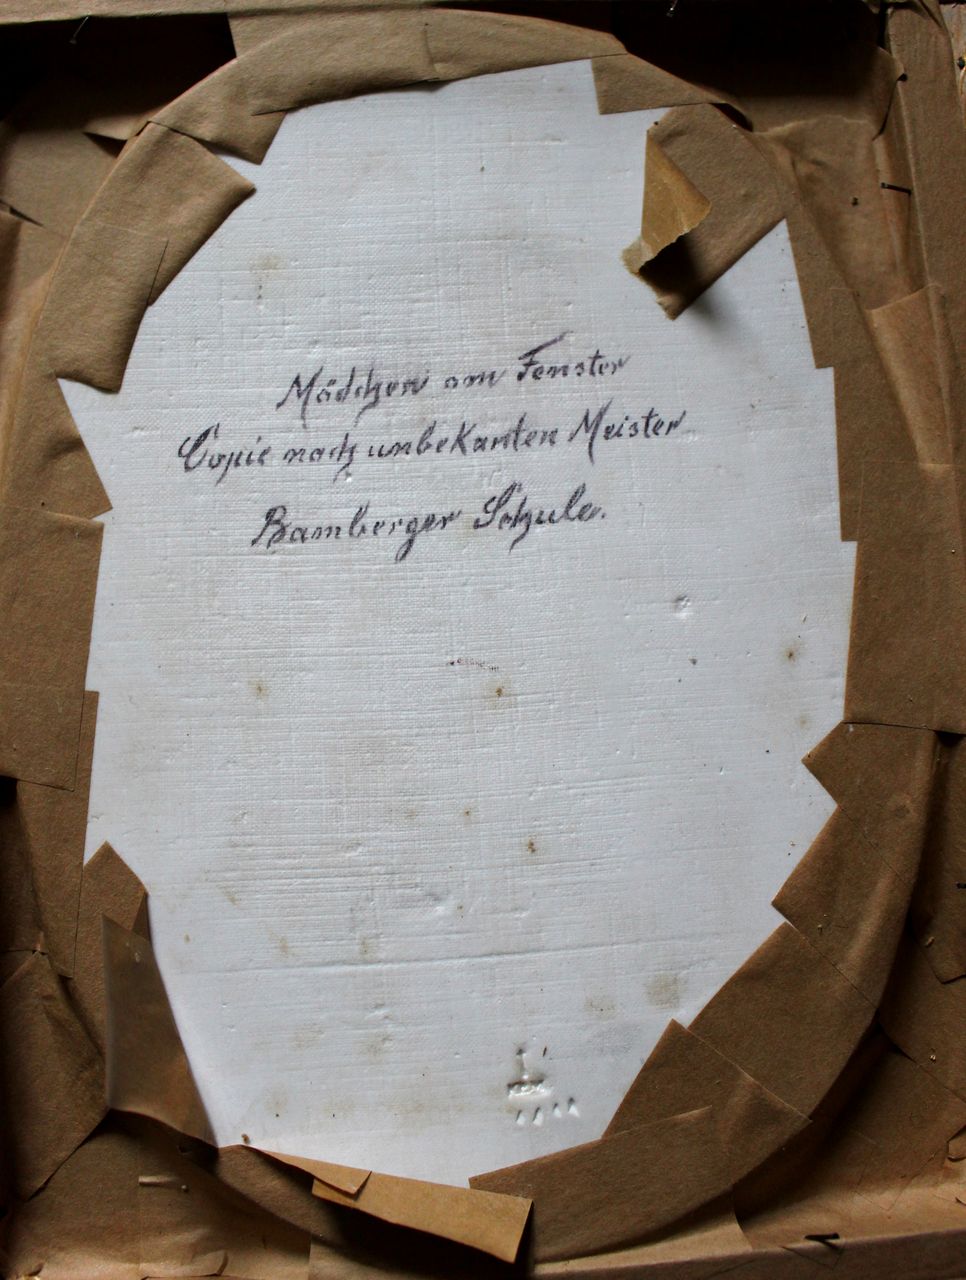 Mädchen am Fenster
Copie nach unbekanten Meister
Bamberger Schule.